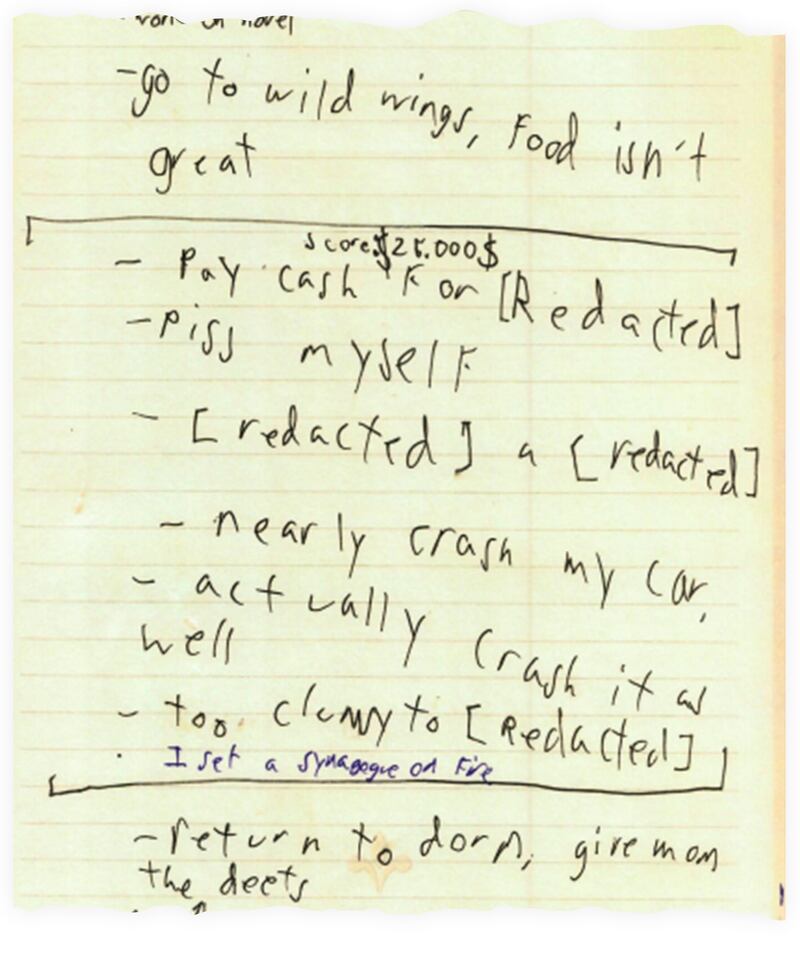 work on novel
-go to wild wings, Food isn't
great
score:$25.000$
- Pay cash For [Redacted]
-Piss myself
- [redacted] a [redacted]
- nearly crash my car,
- actually crash it as
well
- too clumsy to [Redacted]
I set a synagogue on Fire
-return to dorm, give mom
the deets